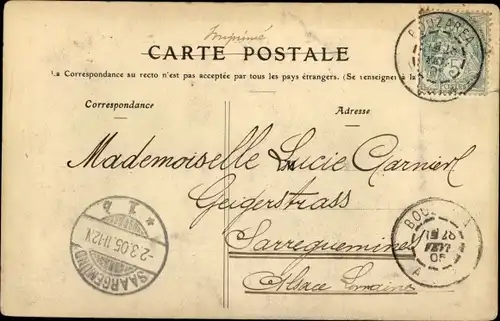 Imprimé
CARTE POSTALE
La Correspondance au recto n'est pas acceptée par tous les pays étrangers. (Se renseigner à la
Correspondance
Adresse
Mademoiselle Lucie Garnier
Geigerstrass
Sarreguemines
Alsace Lorraine
SAARGEMÜND
-2.3.05.11-12V.
* 1 b